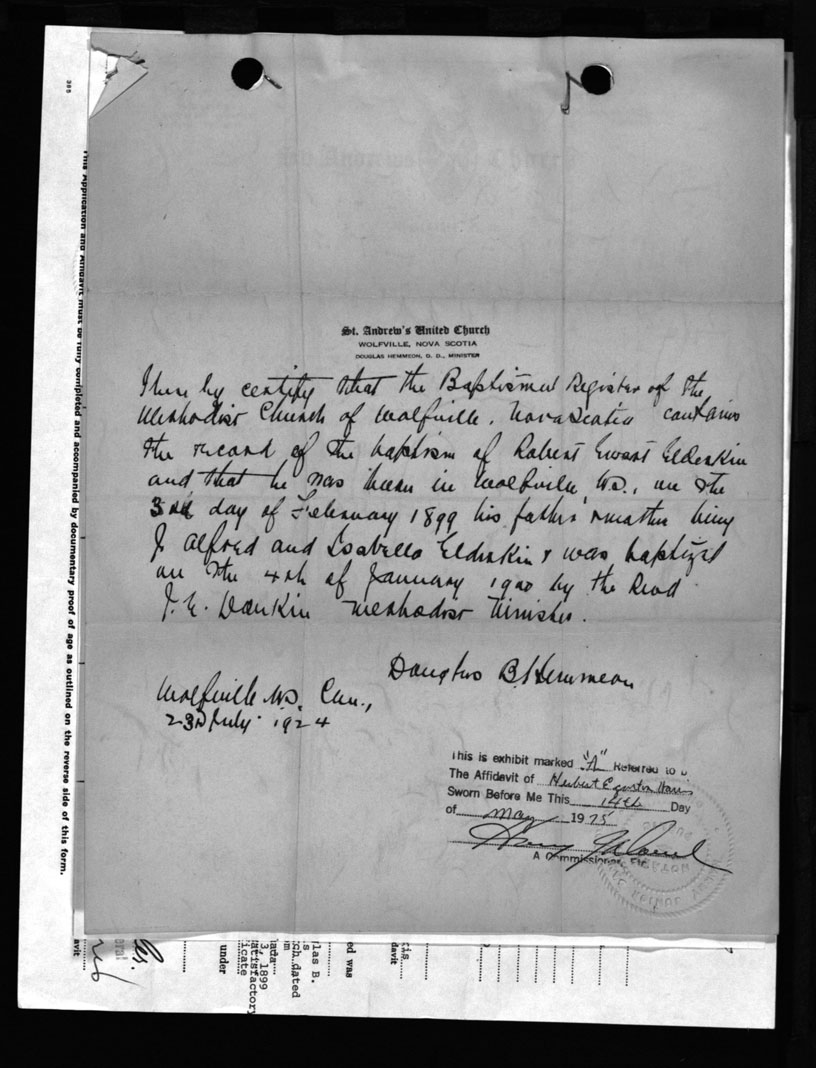 St. Andrew's United Church
WOLFVILLE, NOVA SCOTIA
DOUGLAS HEMMEON, D. D., MINISTER
I here by certify that the Baptismal Register of the
Methodist Church of Wolfville, Nova Scotia contains
the record of the baptism of Robert Ewart Elderkin
and that he was born in Wolfville, N.S., on the
3rd day of February 1899 his father & mother being
J. Alfred and Isabella Elderkin & was baptized
on the 4th of January 1900 by the Revd
J. E. Donkin Methodist Minister.
Douglas B. Hemmeon
Wolfville N.S. Can.,
23rd July 1924
This is exhibit marked "A" Referred to
The Affidavit of Herbert Egerton Harris
Sworn Before Me This 14th Day
of May 1975
A Commissioner, Etc.
This Application and Affidavit must be fully completed and accompanied by documentary proof of age as outlined on the reverse side of this form.
under
icate
satisfactory
3, 1899
ch dated
las B.
ed was
davit